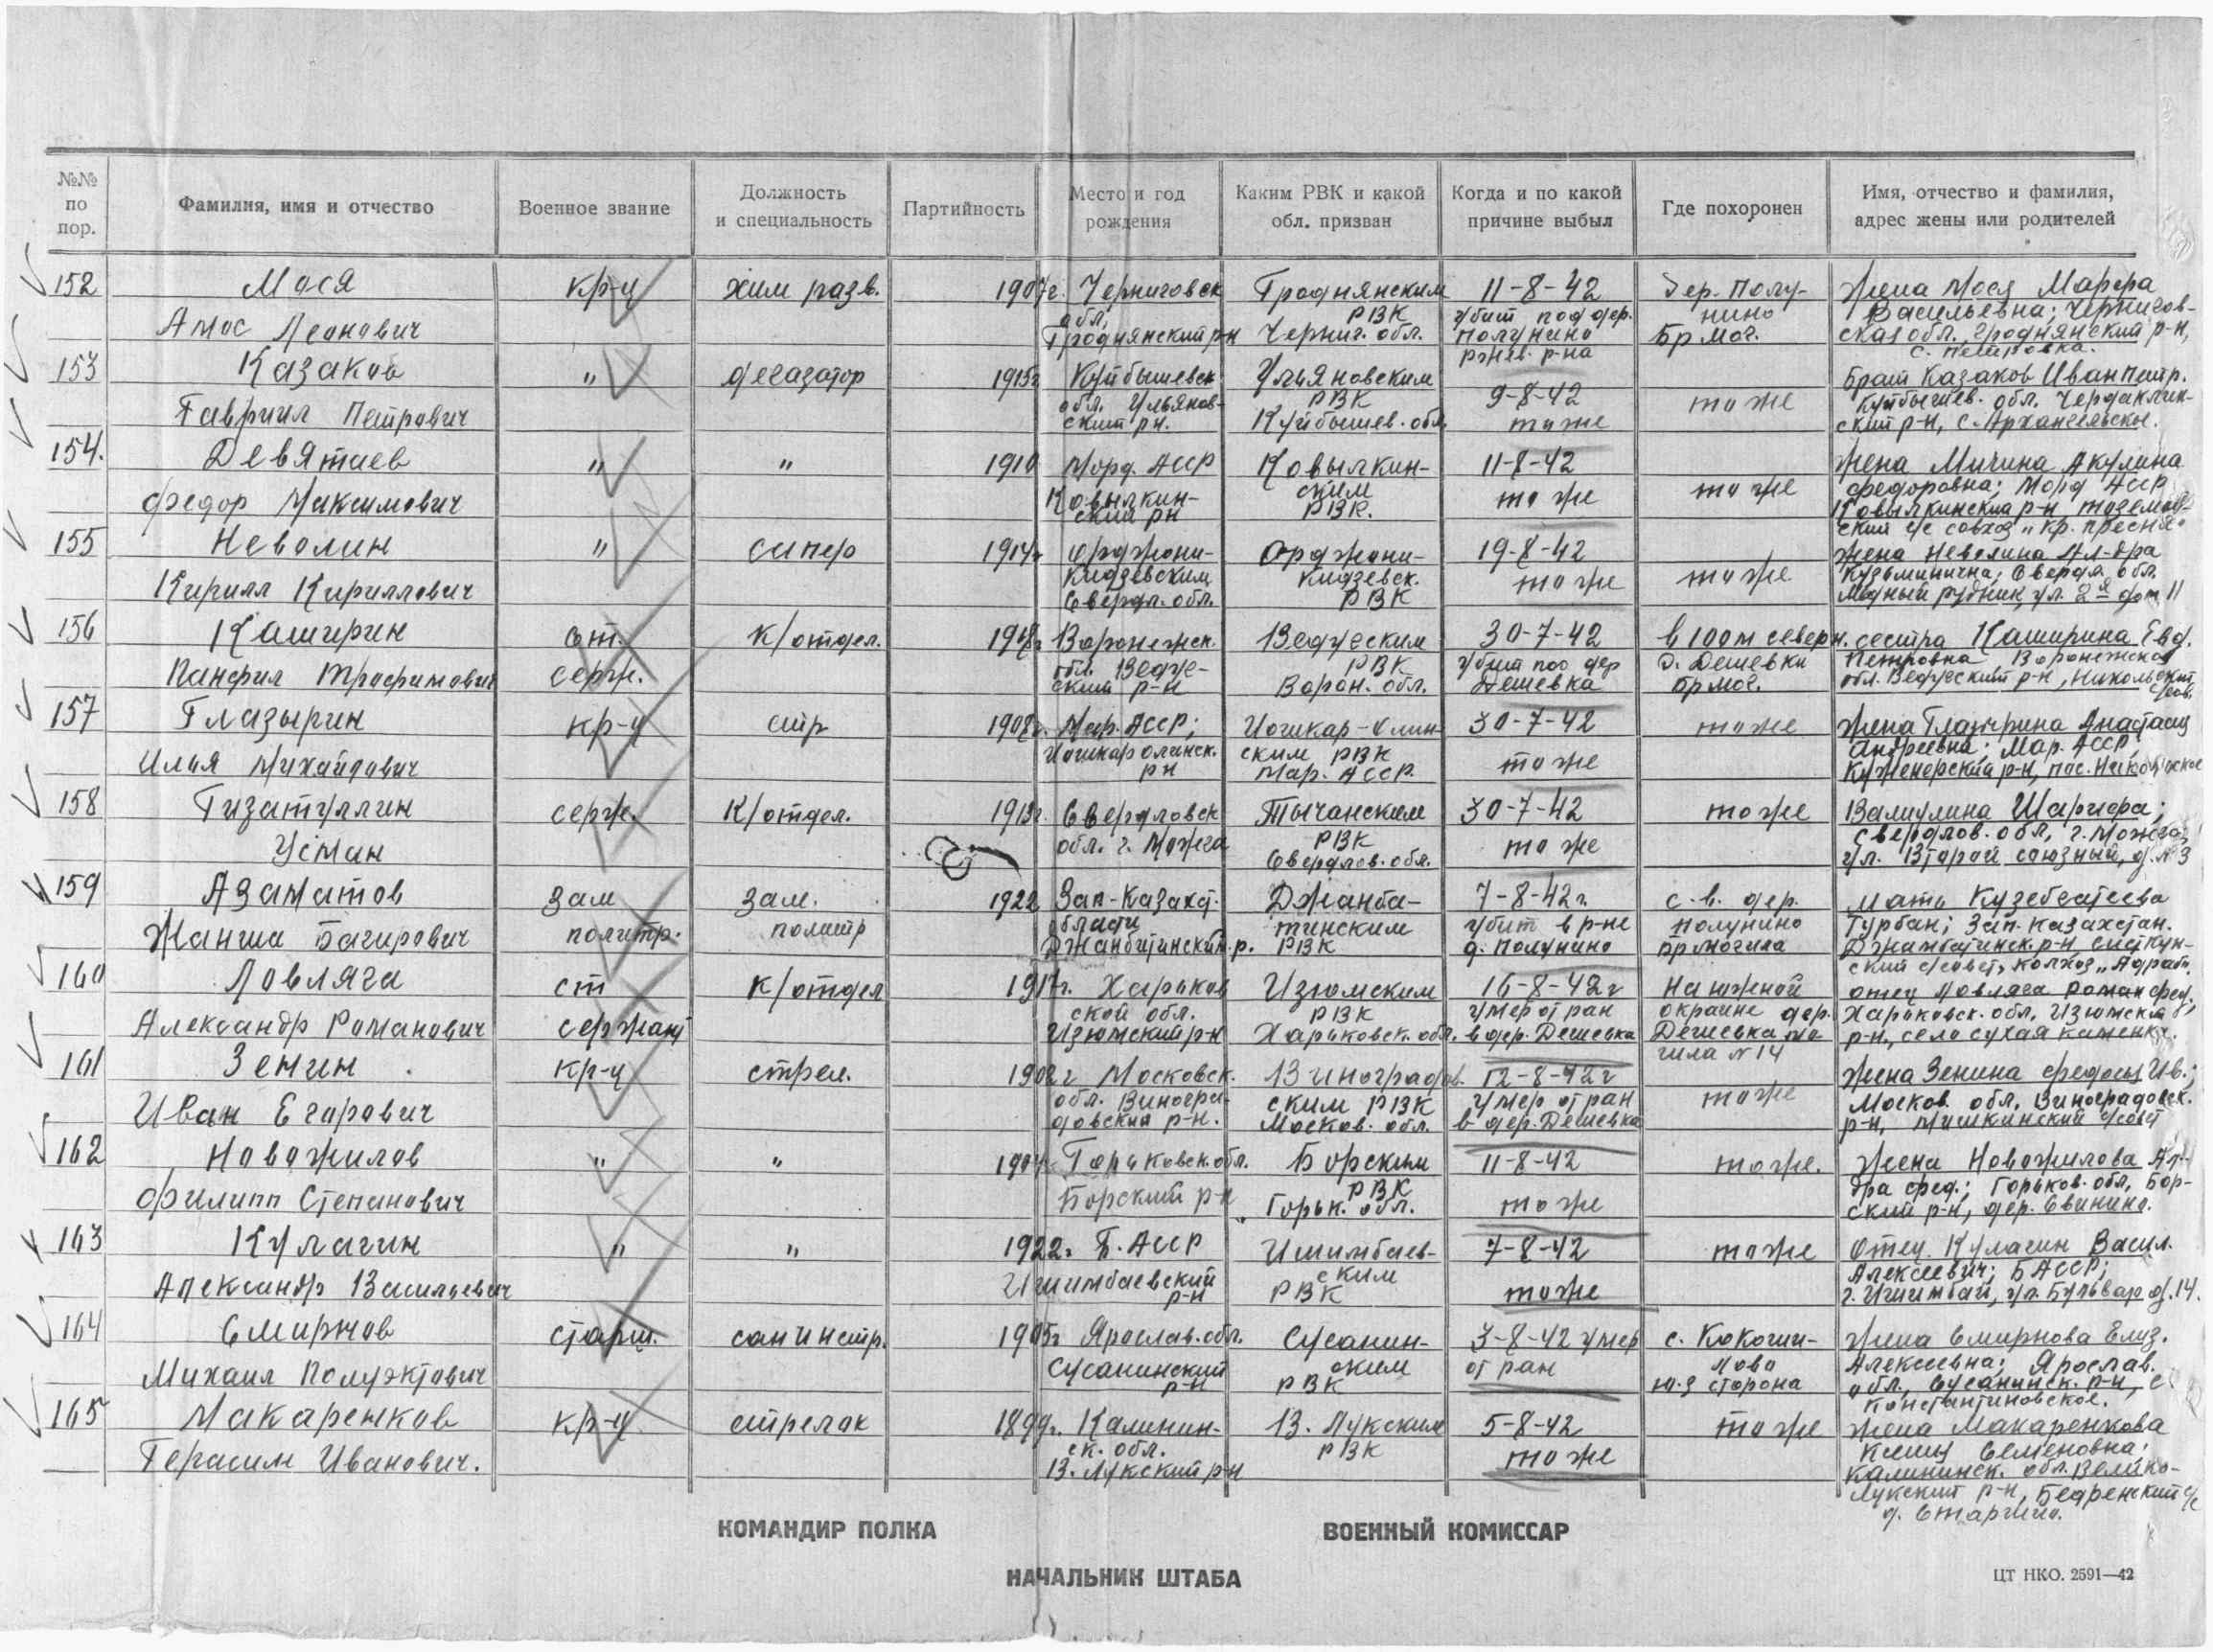 №№ по пор.
Фамилия, имя и отчество
Военное звание
Должность и специальность
Партийность
Место и год рождения
Каким РВК и какой обл. призван
Когда и по какой причине выбыл
Где похоронен
Имя, отчество и фамилия, адрес жены или родителей
152 Мося кр-ц хим разв. 1907г. Черниговск Гроднянским 11-8-42 Дер. Полу- Жена Мося Марфа
обл. РВК убит под дер. нино Васильевна; Чернигов-
Амос Леонович Гроднянский р-н Черниг. обл. Полунино Бр мог. ская обл., Гроднянский р-н,
Ржев. р-на с. Петровка.
153 Казаков " дегазатор 1915г Куйбышевск Ульяновским 9-8-42 то же Брат Казаков Иван Петр.
обл. Ульянов- РВК Куйбышев. обл. Чердаклин-
Гавриил Петрович ский рн. Куйбышев. обл. то же ский р-н, с. Архангельское.
154. Девятаев " " 1910 Морд. АССР Ковылкин- 11-8-42 Жена Мичина Акулина
Федор Максимович Ковылкин- ским то же то же Федоровна; Морд АССР
ский рн РВК. Ковылкинский р-н
ский с/с совхоз „Кр. Пресня"
155 Неволин " сапер 1914г Орджони- Орджони- 19-8-42 Жена Неволина Ал-дра
кидзевским кидзевск. то же то же Кузьминична; Свердл. обл.
Кирилл Кириллович Свердл. обл. РВК Медный рудник, ул. 2я дом 11
156 Каширин ст. к/отдел. 1918г. Воронежск. Ведугским 30-7-42 в 100 м северн. сестра Каширина Евд.
обл. Ведуг- РВК убит под дер д. Дешевки Петровна Воронежская
Панфил Трофимович серж. ский р-н Ворон. обл. Дешевка бр мог. обл. Ведугский р-н,
157 Глазырин кр-ц стр 1908г. Мар. АССР; Йошкар-Олин- 30-7-42 то же Жена Глазырина Анастасия
Йошкаролинск. ским РВК Андреевна; Мар. АССР,
Илья Михайлович рн Мар. АССР. то же Куженерский р-н,
158 Гизатуллин серж. К/отдел. 1913г. Свердловск Тычанским 30-7-42 то же Валиулина Шарифа;
обл. г. Можга РВК Свердлов. обл, г. Можга,
Усман Свердлов. обл. то же ул. Второй союзный, д. № 3
159 Азаматов Зам Зам. 1922 Зап-Казахст. Джанба- 7-8-42г. с. в. дер. мать Кузебгатеева
области тинским убит в р-не Полунино Турбан; Зап. Казахстан.
Жанша Багирович политр. политр Джанбитинский р. РВК д. Полунино бр могила Джамбатинск. р-н,
ский с/совет, колхоз
160 Ловляга ст к/отдел 1917г. Харьков Изюмским 16-8-42г На южной отец Ловляга Роман Фед.,
ской обл. РВК умер от ран окраине дер. Харьковск. обл, Изюмский
Александр Романович сержант Изюмский р-н Харьковск. обл. в дер. Дешевка Дешевка мо- р-н, село Сухая Каменка.
гила № 14
161 Зенин кр-ц стрел. 1902г Московск. Виноградов. 12-8-42г то же Жена Зенина Федосья Ив.;
обл. Виногра- ским РВК умер от ран Москов. обл. Виноградовск.
Иван Егорович довский р-н. Москов. обл. в дер. Дешевка р-н, Мишкинский с/совет
162 Новожилов " " 1904 Горьковск. обл. Борским 11-8-42 то же. Жена Новожилова Ал-
РВК дра Фед.; Горьков. обл, Бор-
Филипп Степанович Борский р-н Горьк. обл. то же ский р-н, дер. Свинино.
163 Кулагин " " 1922г Б. АССР Ишимбаев- 7-8-42 то же Отец Кулагин Васил.
ским Алексеевич; БАССР;
Александр Васильевич Ишимбаевский р-н РВК то же г. Ишимбай, ул. Бульвар д. 14.
164 Смирнов старш. санинстр. 1905г Ярослав. обл. Сусанин- 3-8-42 умер с. Кокоши- Жена Смирнова Елиз.
Сусанинский ским от ран лово Алексеевна; Ярослав.
Михаил Полуэктович р-н РВК ю-з сторона обл, Сусанинск. р-н, с
Константиновское.
165 Макаренков кр-ц стрелок 1899г. Калинин- В. Лукским 5-8-42 то же Жена Макаренкова
ск. обл. РВК Семеновна;
Герасим Иванович. В. Лукский р-н то же Калининск. обл. Велико-
лукский р-н, Бедренский с/с
КОМАНДИР ПОЛКА
ВОЕННЫЙ КОМИССАР
НАЧАЛЬНИК ШТАБА
ЦТ НКО. 2591—42